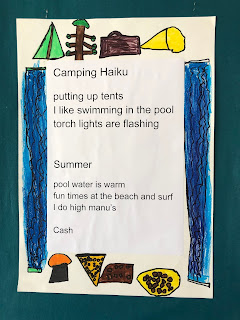 Camping Haiku
putting up tents
I like swimming in the pool
torch lights are flashing
Summer
pool water is warm
fun times at the beach and surf
I do high manu's
Cash